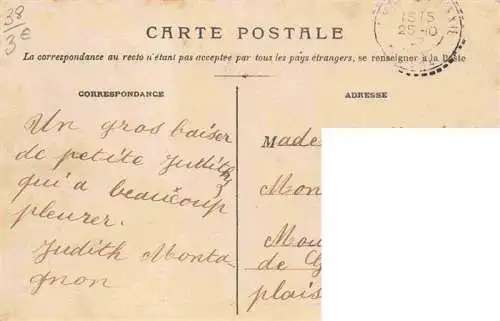 38
3€
CARTE POSTALE
1515
25-10
La correspondance au recto n'étant pas acceptée par tous les pays étrangers, se renseigner à la Poste
CORRESPONDANCE
ADRESSE
Un gros baiser
de petite Juditte
qui a beaucoup
pleurer.
Judith Monta
gnon
Made
Mon
Mou
de
plais